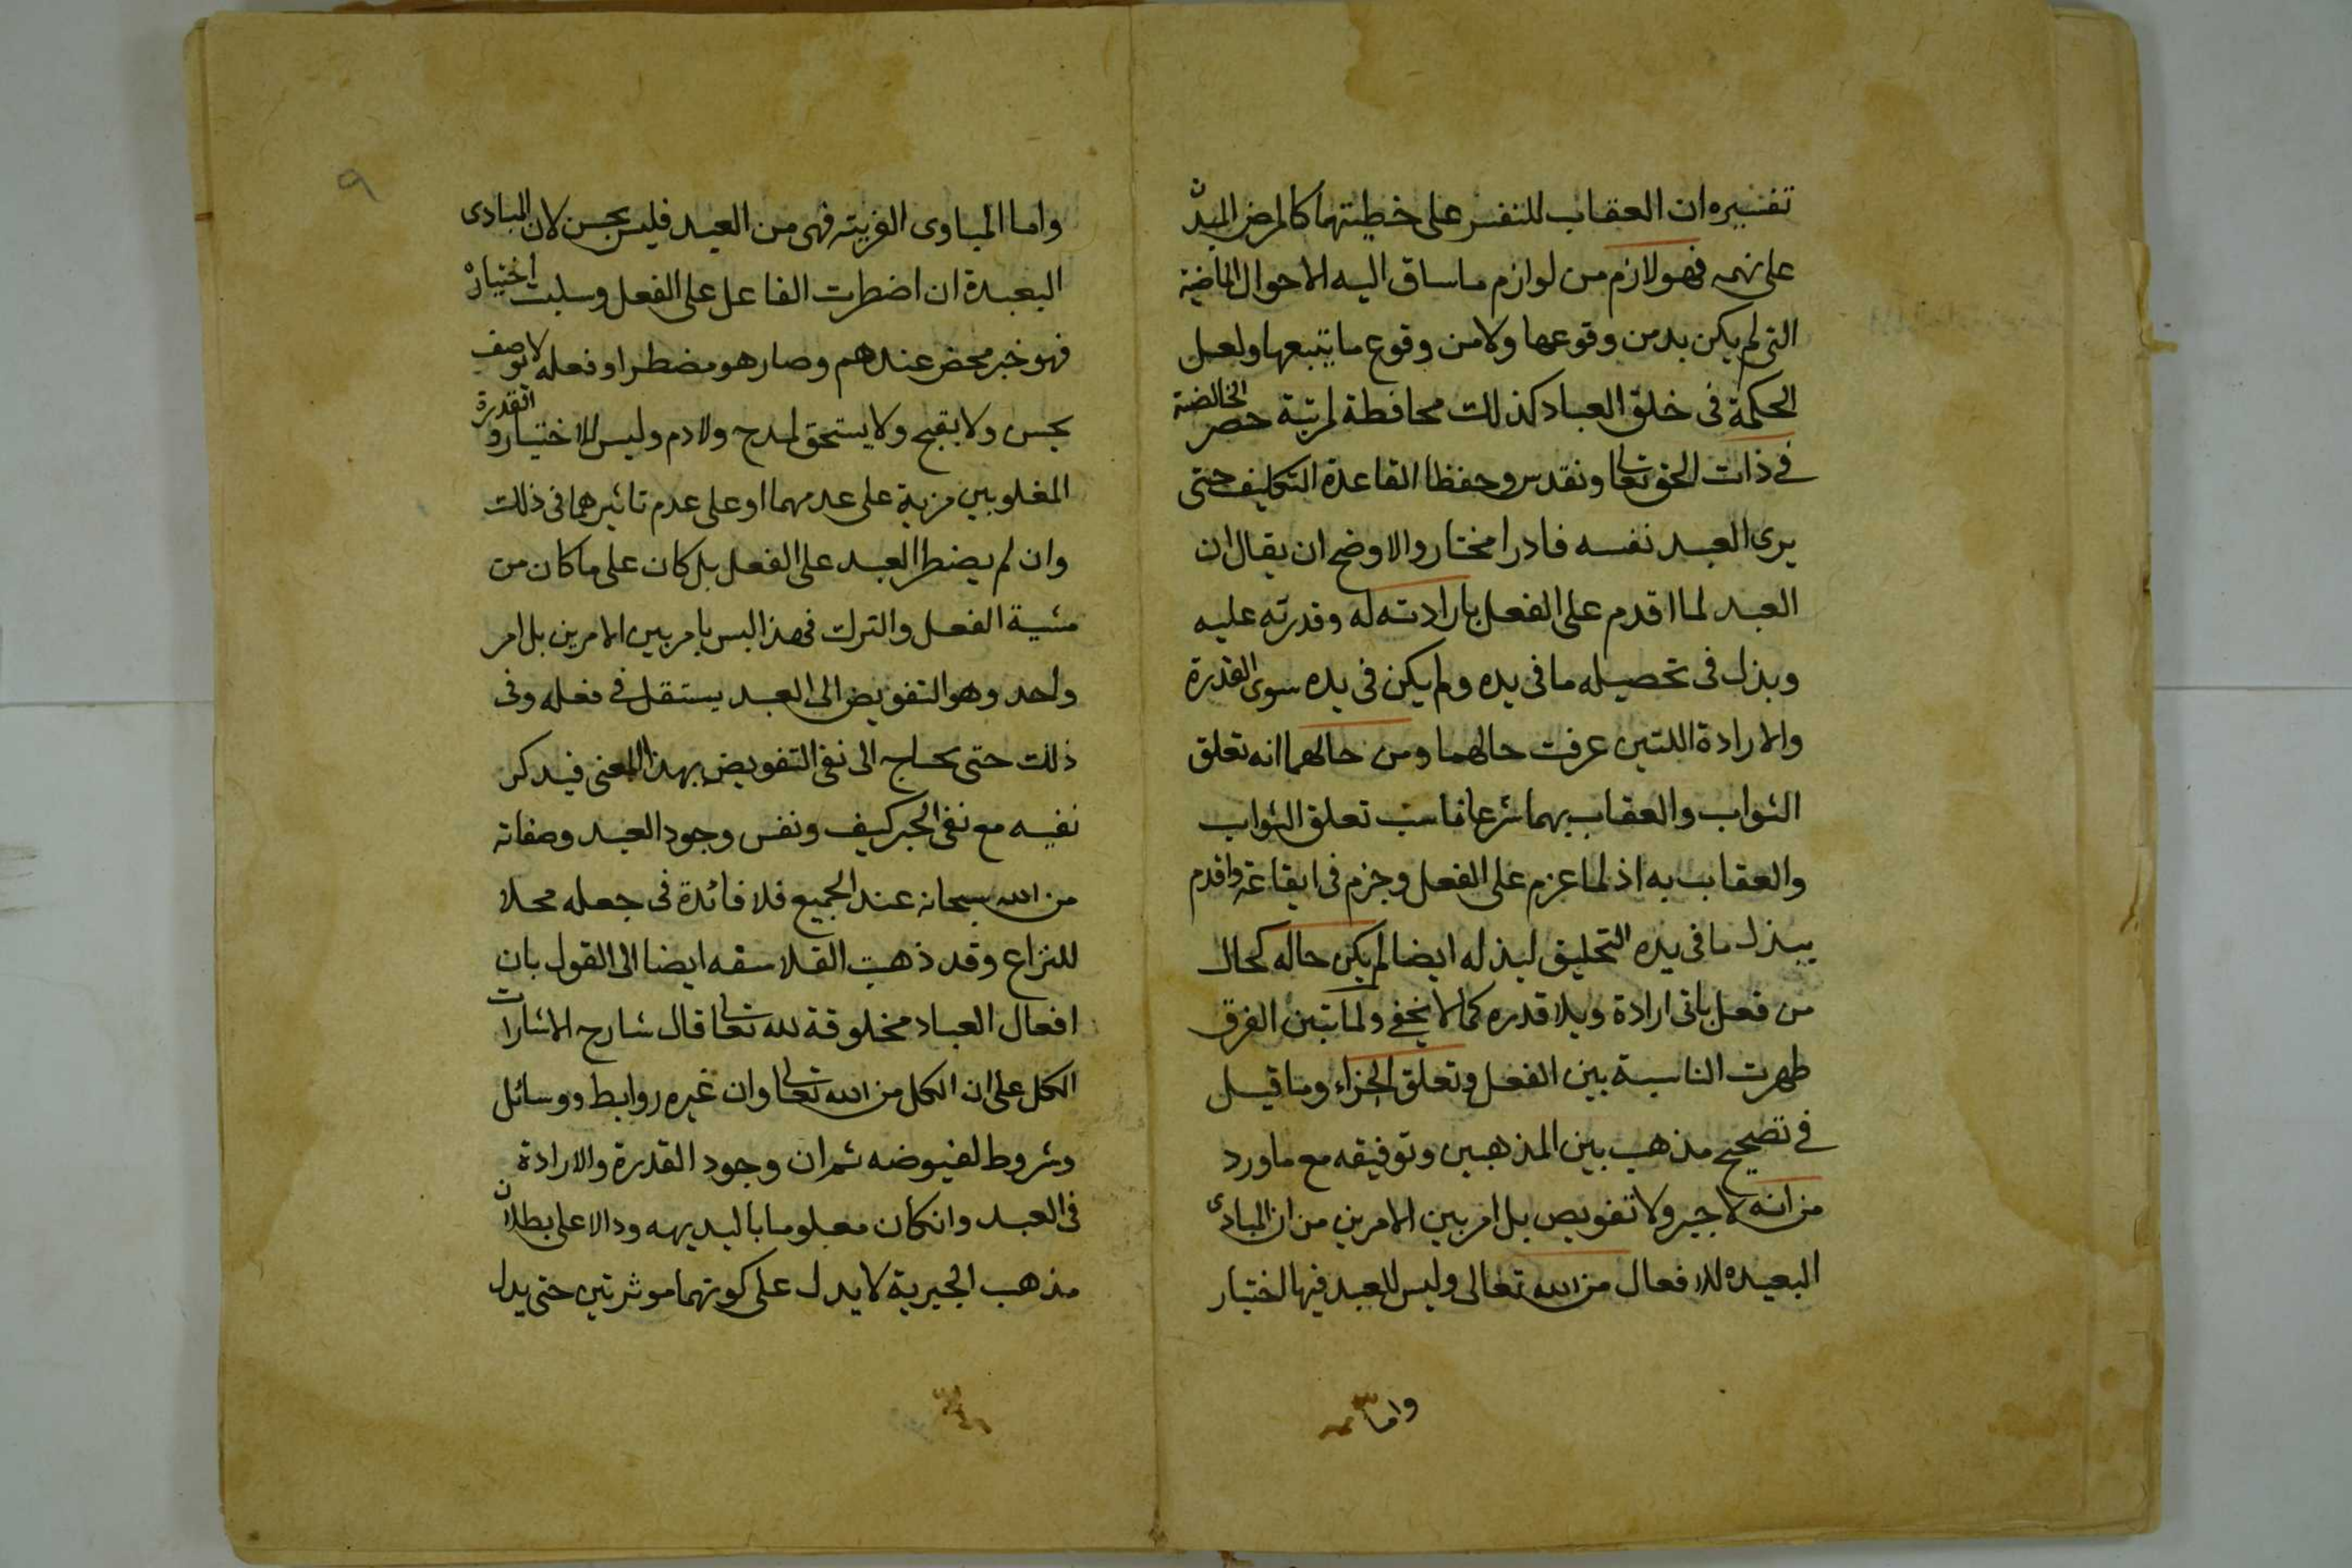 تفسيره ان العقاب للنفس على خطيتها كالمرض للبدن
على نهمه فهو لازم من لوازم ما ساق اليه الاحوال الماضية
التى لم يكن بد من وقوعها ولا من وقوع ما يتبعها ولعل
الحكمة فى خلق العباد كذلك محافظة لمرتبة حصر الخالقية
فى ذات الحق تعالى وتقدس وحفظا القاعدة التكليف حتى
يرى العبد نفسه قادرا مختار والاوضح ان يقال ان
العبد لما اقدم على الفعل بارادته له وقدرته عليه
وبذل فى تحصيله ما فى يده ولم يكن فى يده سوى القدرة
والارادة اللتين عرفت حالهما ومن حالهما انه تعلق
الثواب والعقاب بهما شرعا فناسب تعلق الثواب
والعقاب به اذ لما عزم على الفعل وجزم فى ايقاعه واقدم
ببذل ما فى يده التخليق لبذله ايضا لم يكن حاله كحال
من فعل باتى ارادة وبلا قدره كما لا يخفى ولما تبين الفرق
ظهرت الناسبة بين الفعل وتعلق الجزاء وما قيل
فى تصحيح مذهب بين المذهبين وتوفيقه مع ما ورد
من انه لا جبر ولا تفويض بل امر بين الامرين من ان المبادى
البعيده للافعال من الله تعالى وليس للعبد فيها اختيار
واما
٩
واما المباوى القريبه فهى من العبد فليس بحسن لان المبادى
البعيدة ان اضطرت الفاعل على الفعل وسلبت اختياره
فهو خبر محض عندهم وصار هو مضطرا وفعله لا يوصف
بحسن ولا بقبح ولا يستحق لمدح ولا دم وليس للاختيار والقدرة
المغلوبين مزية على عدمهما او على عدم تاثيرهما فى ذلك
وان لم يضطر العبد على الفعل بل كان على ما كان من
مشية الفعل والترك فهذا ليس بامر بين الامرين بل امر
واحد وهو التفويض الى العبد يستقل فى فعله وفى
ذلك حتى يحتاج الى نفى التفويض بهذا المعنى فيذكر
نفيه مع نفى الجبر كيف ونفس وجود العبد وصفاته
من الله سبحانه عند الجميع فلا فائدة فى جعله محلا
للنزاع وقد ذهبت الفلاسفه ايضا الى القول بان
افعال العباد مخلوقة لله تعالى قال شارح الاشارات
الكل على ان الكل من الله تعالى وان غيره روابط ووسائل
وشروط لفيوضه ثم ان وجود القدرة والارادة
فى العبد وانكان معلوما بالبديهه ودالا على بطلان
مذهب الجبرية لا يدل على كونهما موثرتين حتى يدل